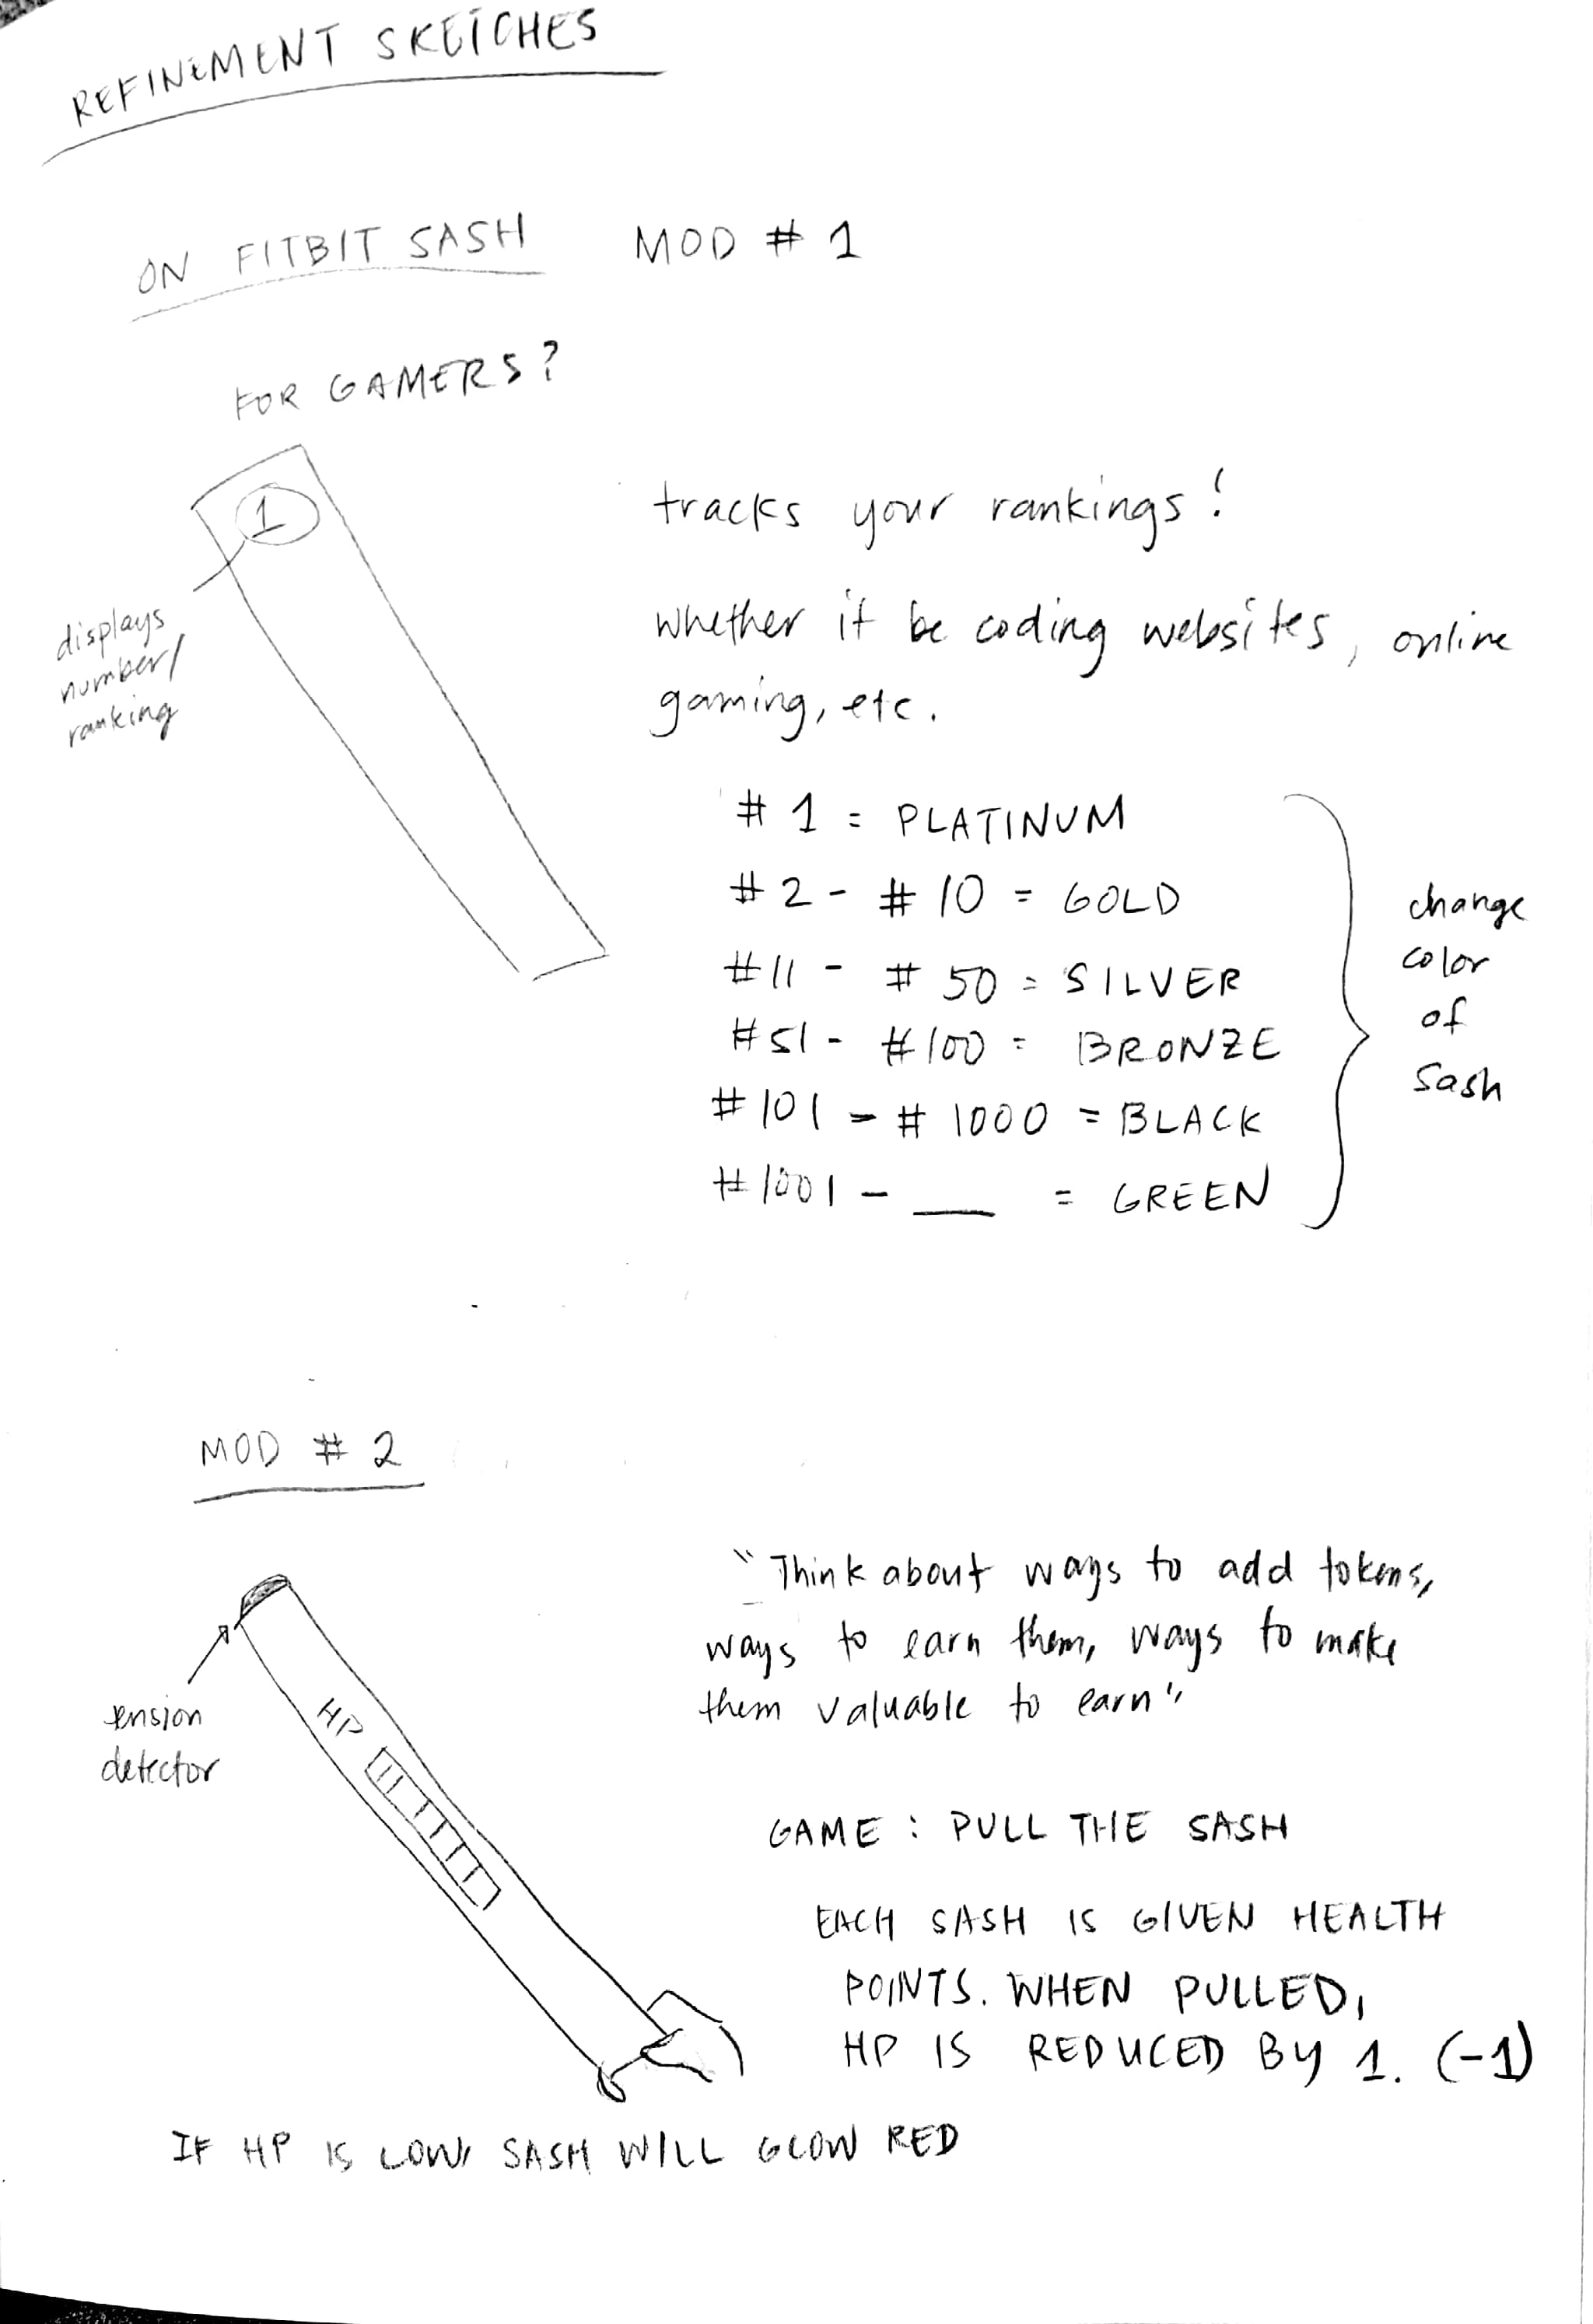 REFINEMENT SKETCHES
ON FITBIT SASH MOD # 1
FOR GAMERS?
1
displays
number/
ranking
tracks your rankings!
whether it be coding websites, online
gaming, etc.
# 1 = PLATINUM
# 2 - # 10 = GOLD
# 11 - # 50 = SILVER
# 51 - # 100 = BRONZE
# 101 - # 1000 = BLACK
# 1001 - ___ = GREEN
change
color
of
sash
MOD # 2
tension
detector
HP
"Think about ways to add tokens,
ways to earn them, ways to make
them valuable to earn"
GAME : PULL THE SASH
EACH SASH IS GIVEN HEALTH
POINTS. WHEN PULLED,
HP IS REDUCED BY 1. (-1)
IF HP IS LOW, SASH WILL GLOW RED